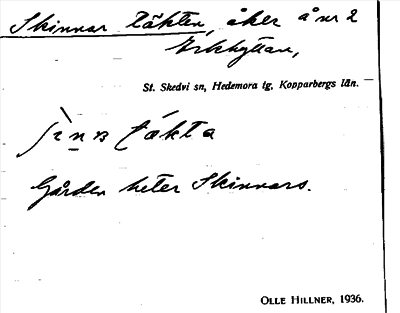 Skinnar täkten, åker å nr 2
Arkhyttan,
St. Skedvi sn, Hedemora tg, Kopparbergs län.
täkta
Gården heter Skinnars.
OLLE HILLNER, 1936.